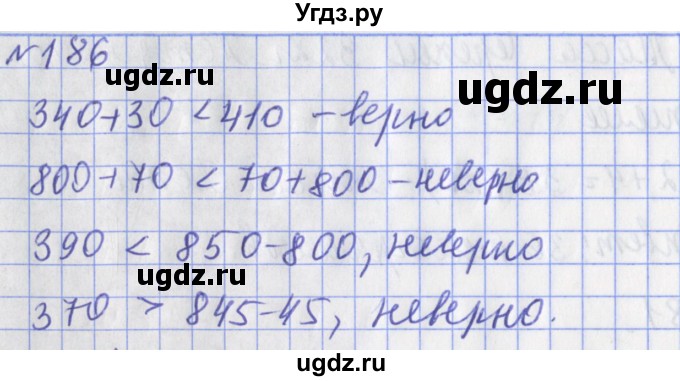 Угадз.ру
№186
ugdz.ru
ugdz.ru
340+30 < 410 – верно
800+70 < 70+800 – неверно
390 < 850-800, неверно
ugdz.ru
370 > 845-45, неверно.
ugdz.ru